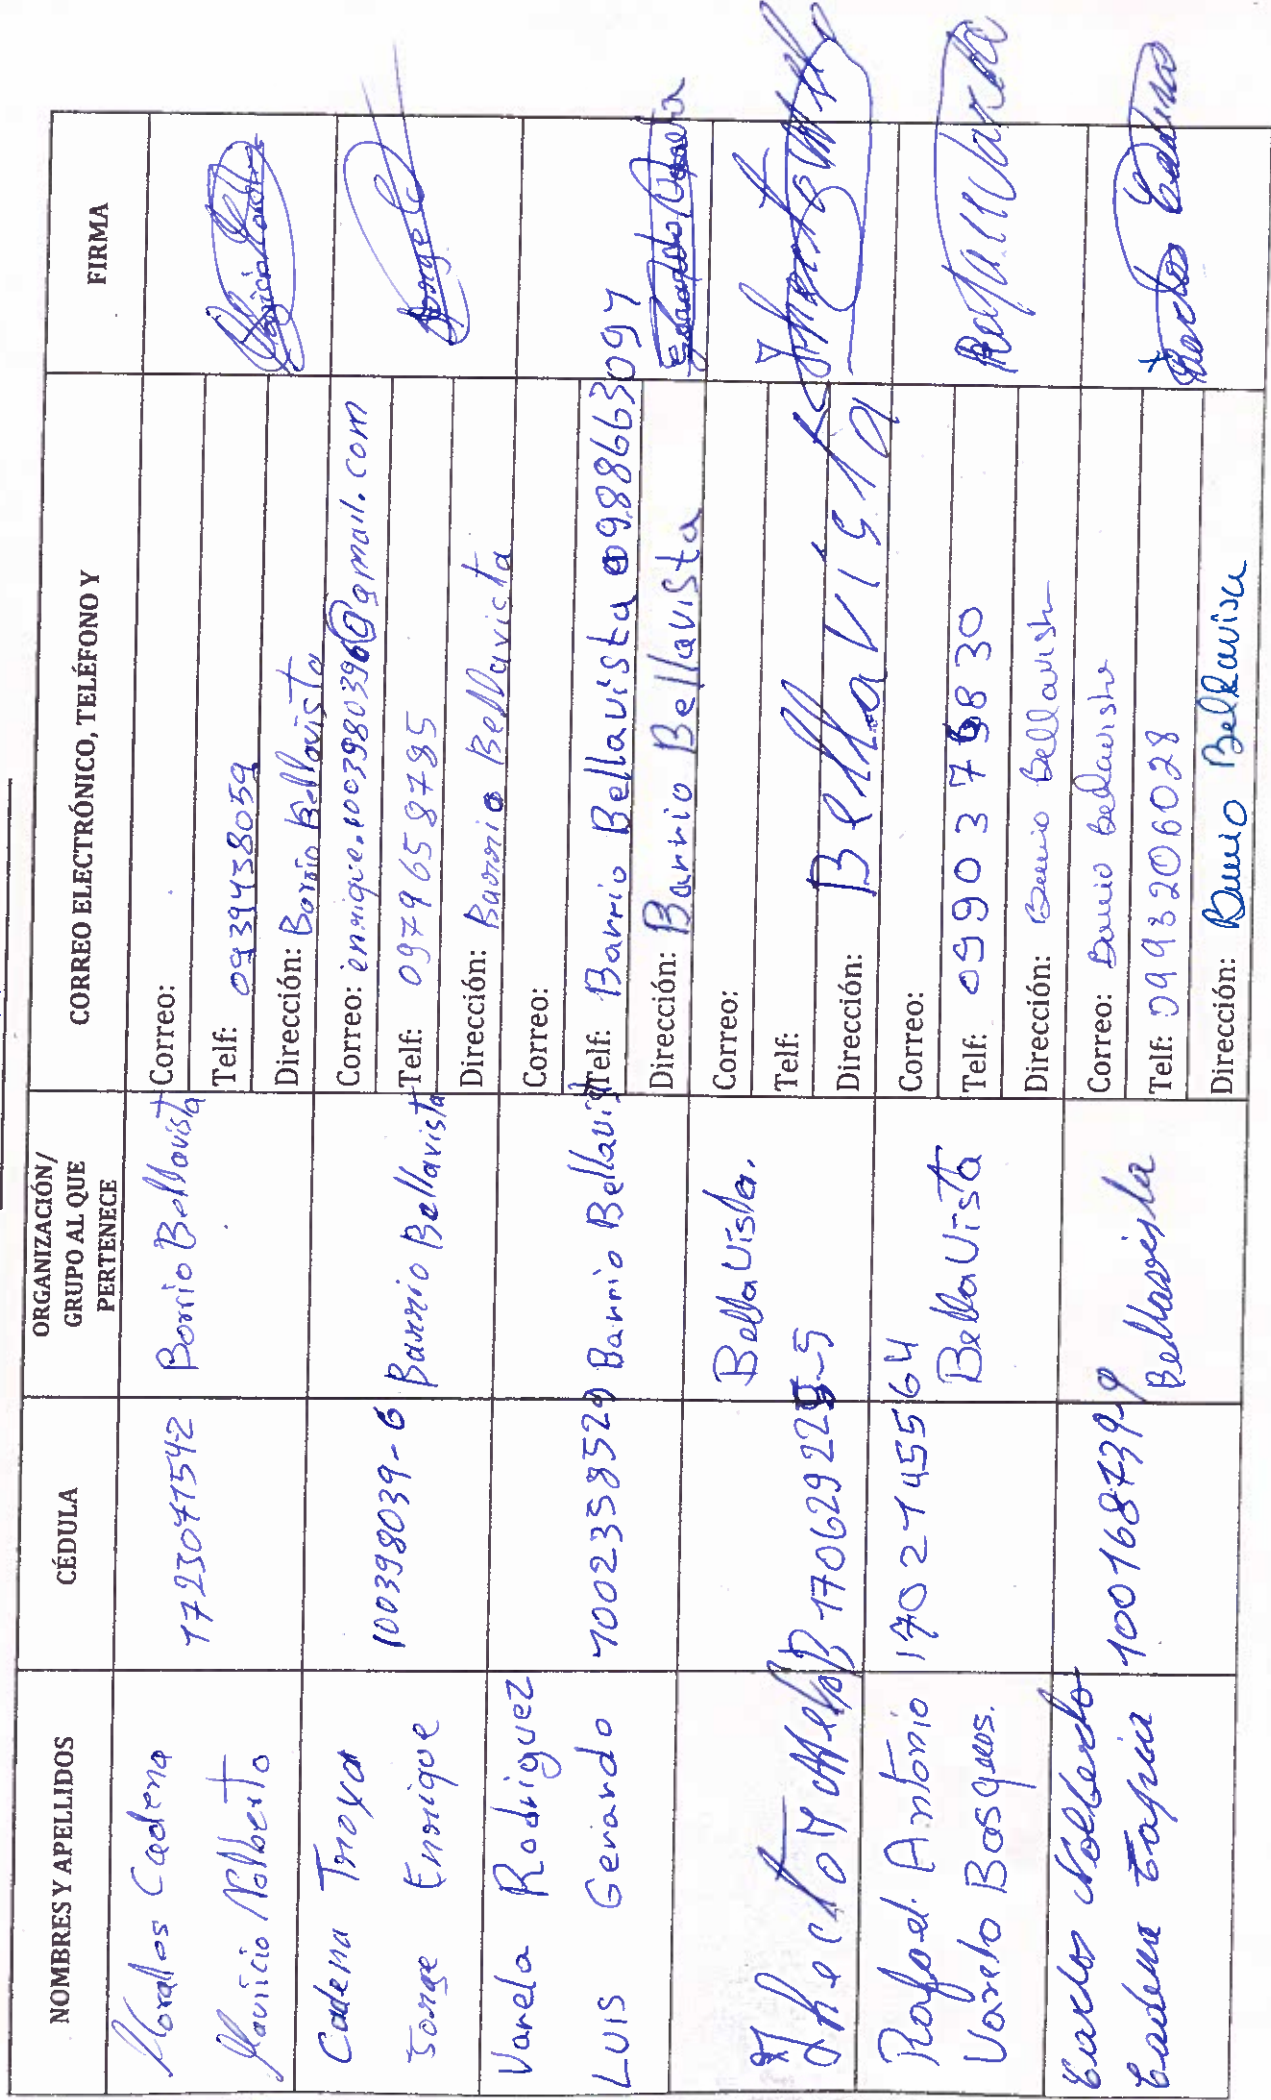 NOMBRES Y APELLIDOS
CÉDULA
ORGANIZACIÓN/
GRUPO AL QUE
PERTENECE
CORREO ELECTRÓNICO, TELÉFONO Y
FIRMA
Morales Cadena
Mauricio Nolberto
1723071542
Barrio Bellavista
Correo:
Telf: 0939438059
Dirección: Barrio Bellavista
Cadena Troya
Jorge Enrique
100398039-6
Barrio Bellavista
Correo: enrique.1003980396@gmail.com
Telf: 0979658785
Dirección: Barrio Bellavista
Jorge
Varela Rodriguez
Luis Gerardo
1002358529
Barrio Bellavista
Correo:
Telf: Barrio Bellavista 0988663097
Dirección: Barrio Bellavista
Gerardo Varela
BellaVista.
Correo:
Telf:
Dirección: Bella Vista
Rafael Antonio
Varela Bosques.
1702145564
BellaVista
Correo:
Telf:
Dirección: Barrio Bellavista
Rafael Varela
Carlos Nolberto
Cadena Tapia
100168739-9
Bellavista
Correo: Barrio Bellavista
Telf: 0993206028
Dirección: Barrio Bellavisa
Carlos Cadena